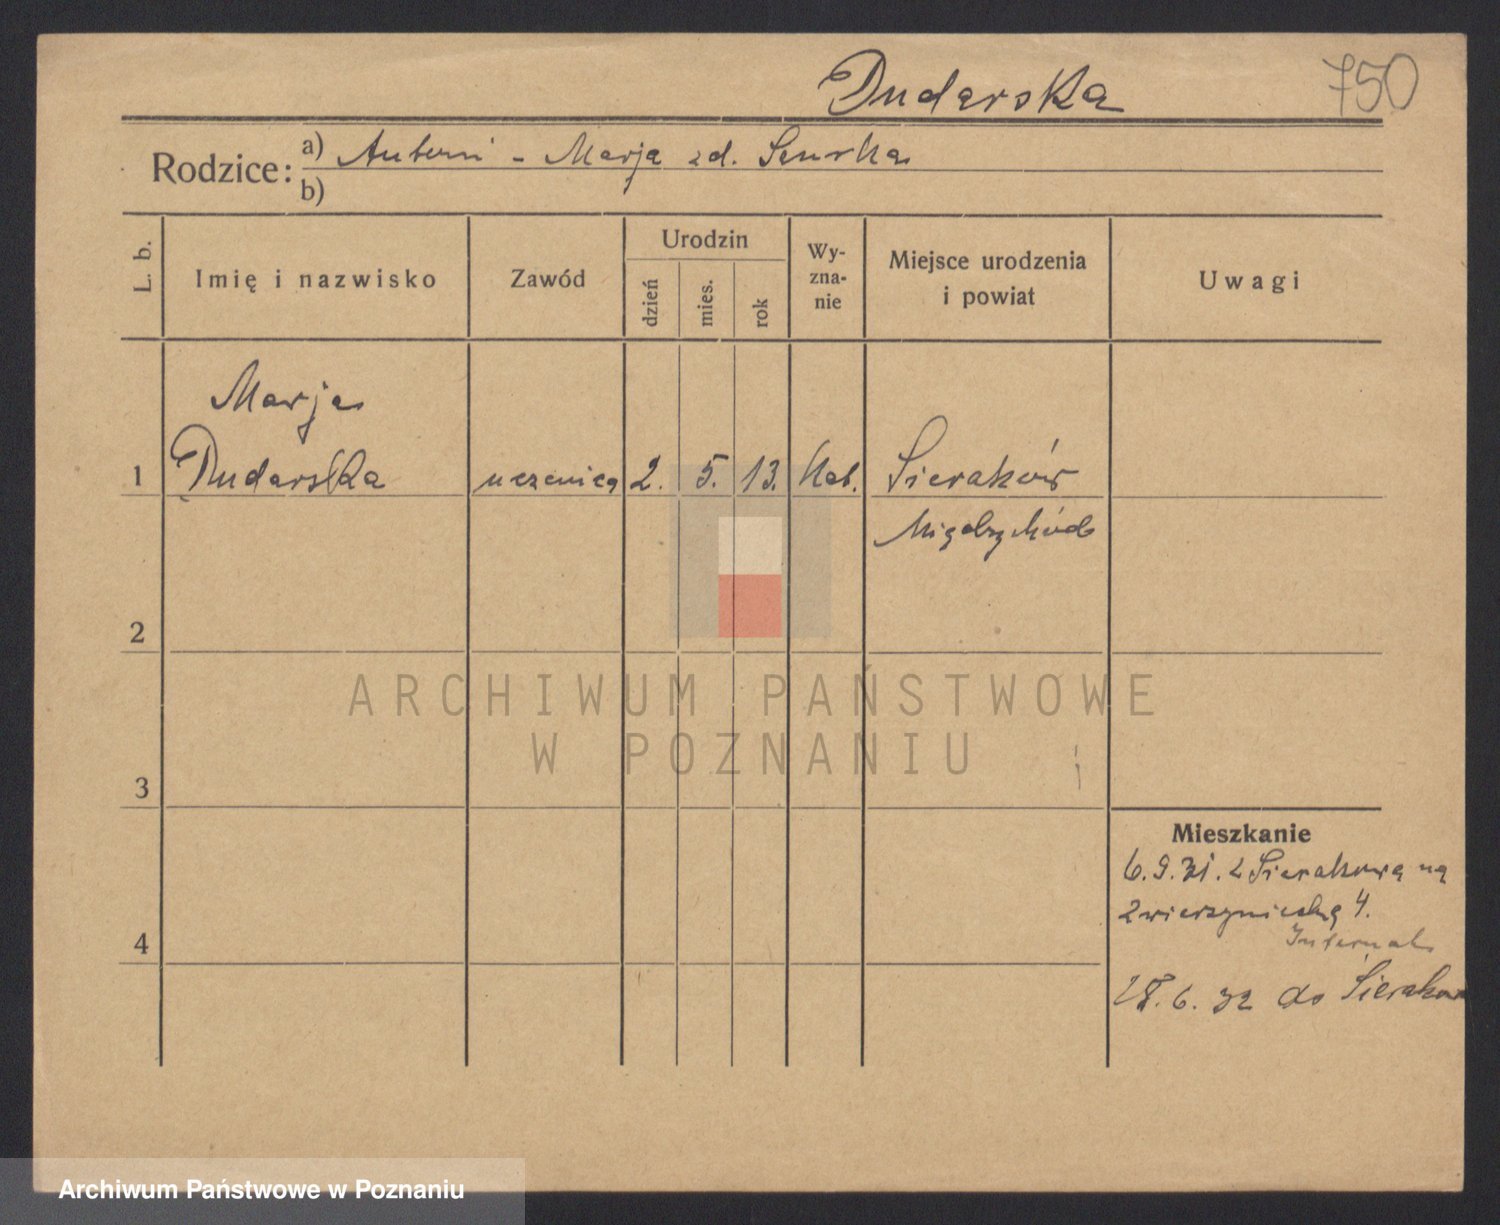 Dudarska
750
Rodzice: a) Antoni - Marja zd.
b)
L. b.
Imię i nazwisko
Zawód
Urodzin
dzień
mies.
rok
Wy-
zna-
nie
Miejsce urodzenia
i powiat
Uwagi
Marja
1 Dudarska uczenica 2. 5. 13. Kat. Sieraków
Międzychód
2
ARCHIWUM PAŃSTWOWE
W POZNANIU
3
Mieszkanie
6.9.31. z Sierakowa na
Zwierzyniecką 4.
Internat
4
28.6.32 do Sierakowa
Archiwum Państwowe w Poznaniu